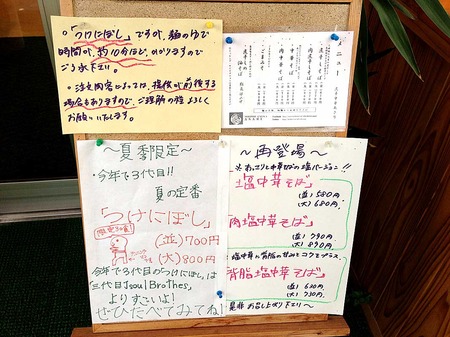 ・「つけにぼし」ですが、麺のゆで
時間が、約10分ほど、かかりますので
ご了承下さい。
・注文内容によっては、提供が前後する
場合もありますので、ご理解の程よろしく
お願いいたします。
メニュー
～夏季限定～
・今年で3代目!!
夏の定番
「つけにぼし」
(並) 700円
(大) 800円
今年で3代目のつけにぼしは
三代目 J soul Brothes,
よりすごいよ!
ぜひたべてみてね!
～再登場～
※あっさり中華そばの塩バージョン!!
塩中華そば」
(並) 580円
(大) 680円
肉塩中華そば」
(並) 790円
(大) 890円
※塩中華に背脂の甘みとコクをプラス。
背脂塩中華そば」
(並) 630円
(大) 730円
是非お召し上がり下さい～